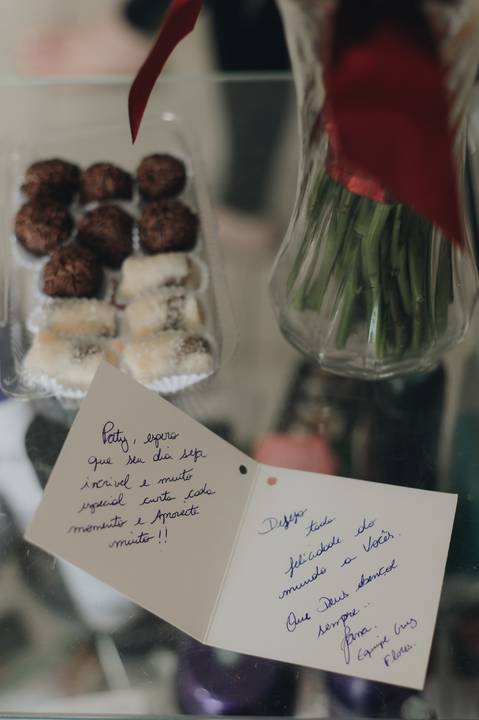 Paty, espero
que seu dia seja
incrivel e muito
especial curta cada
momento e Aproveite
muito!!
Desejo
toda
felicidade do
mundo a Vocês.
Que Deus abençoe
sempre..
Equipe
Flores.